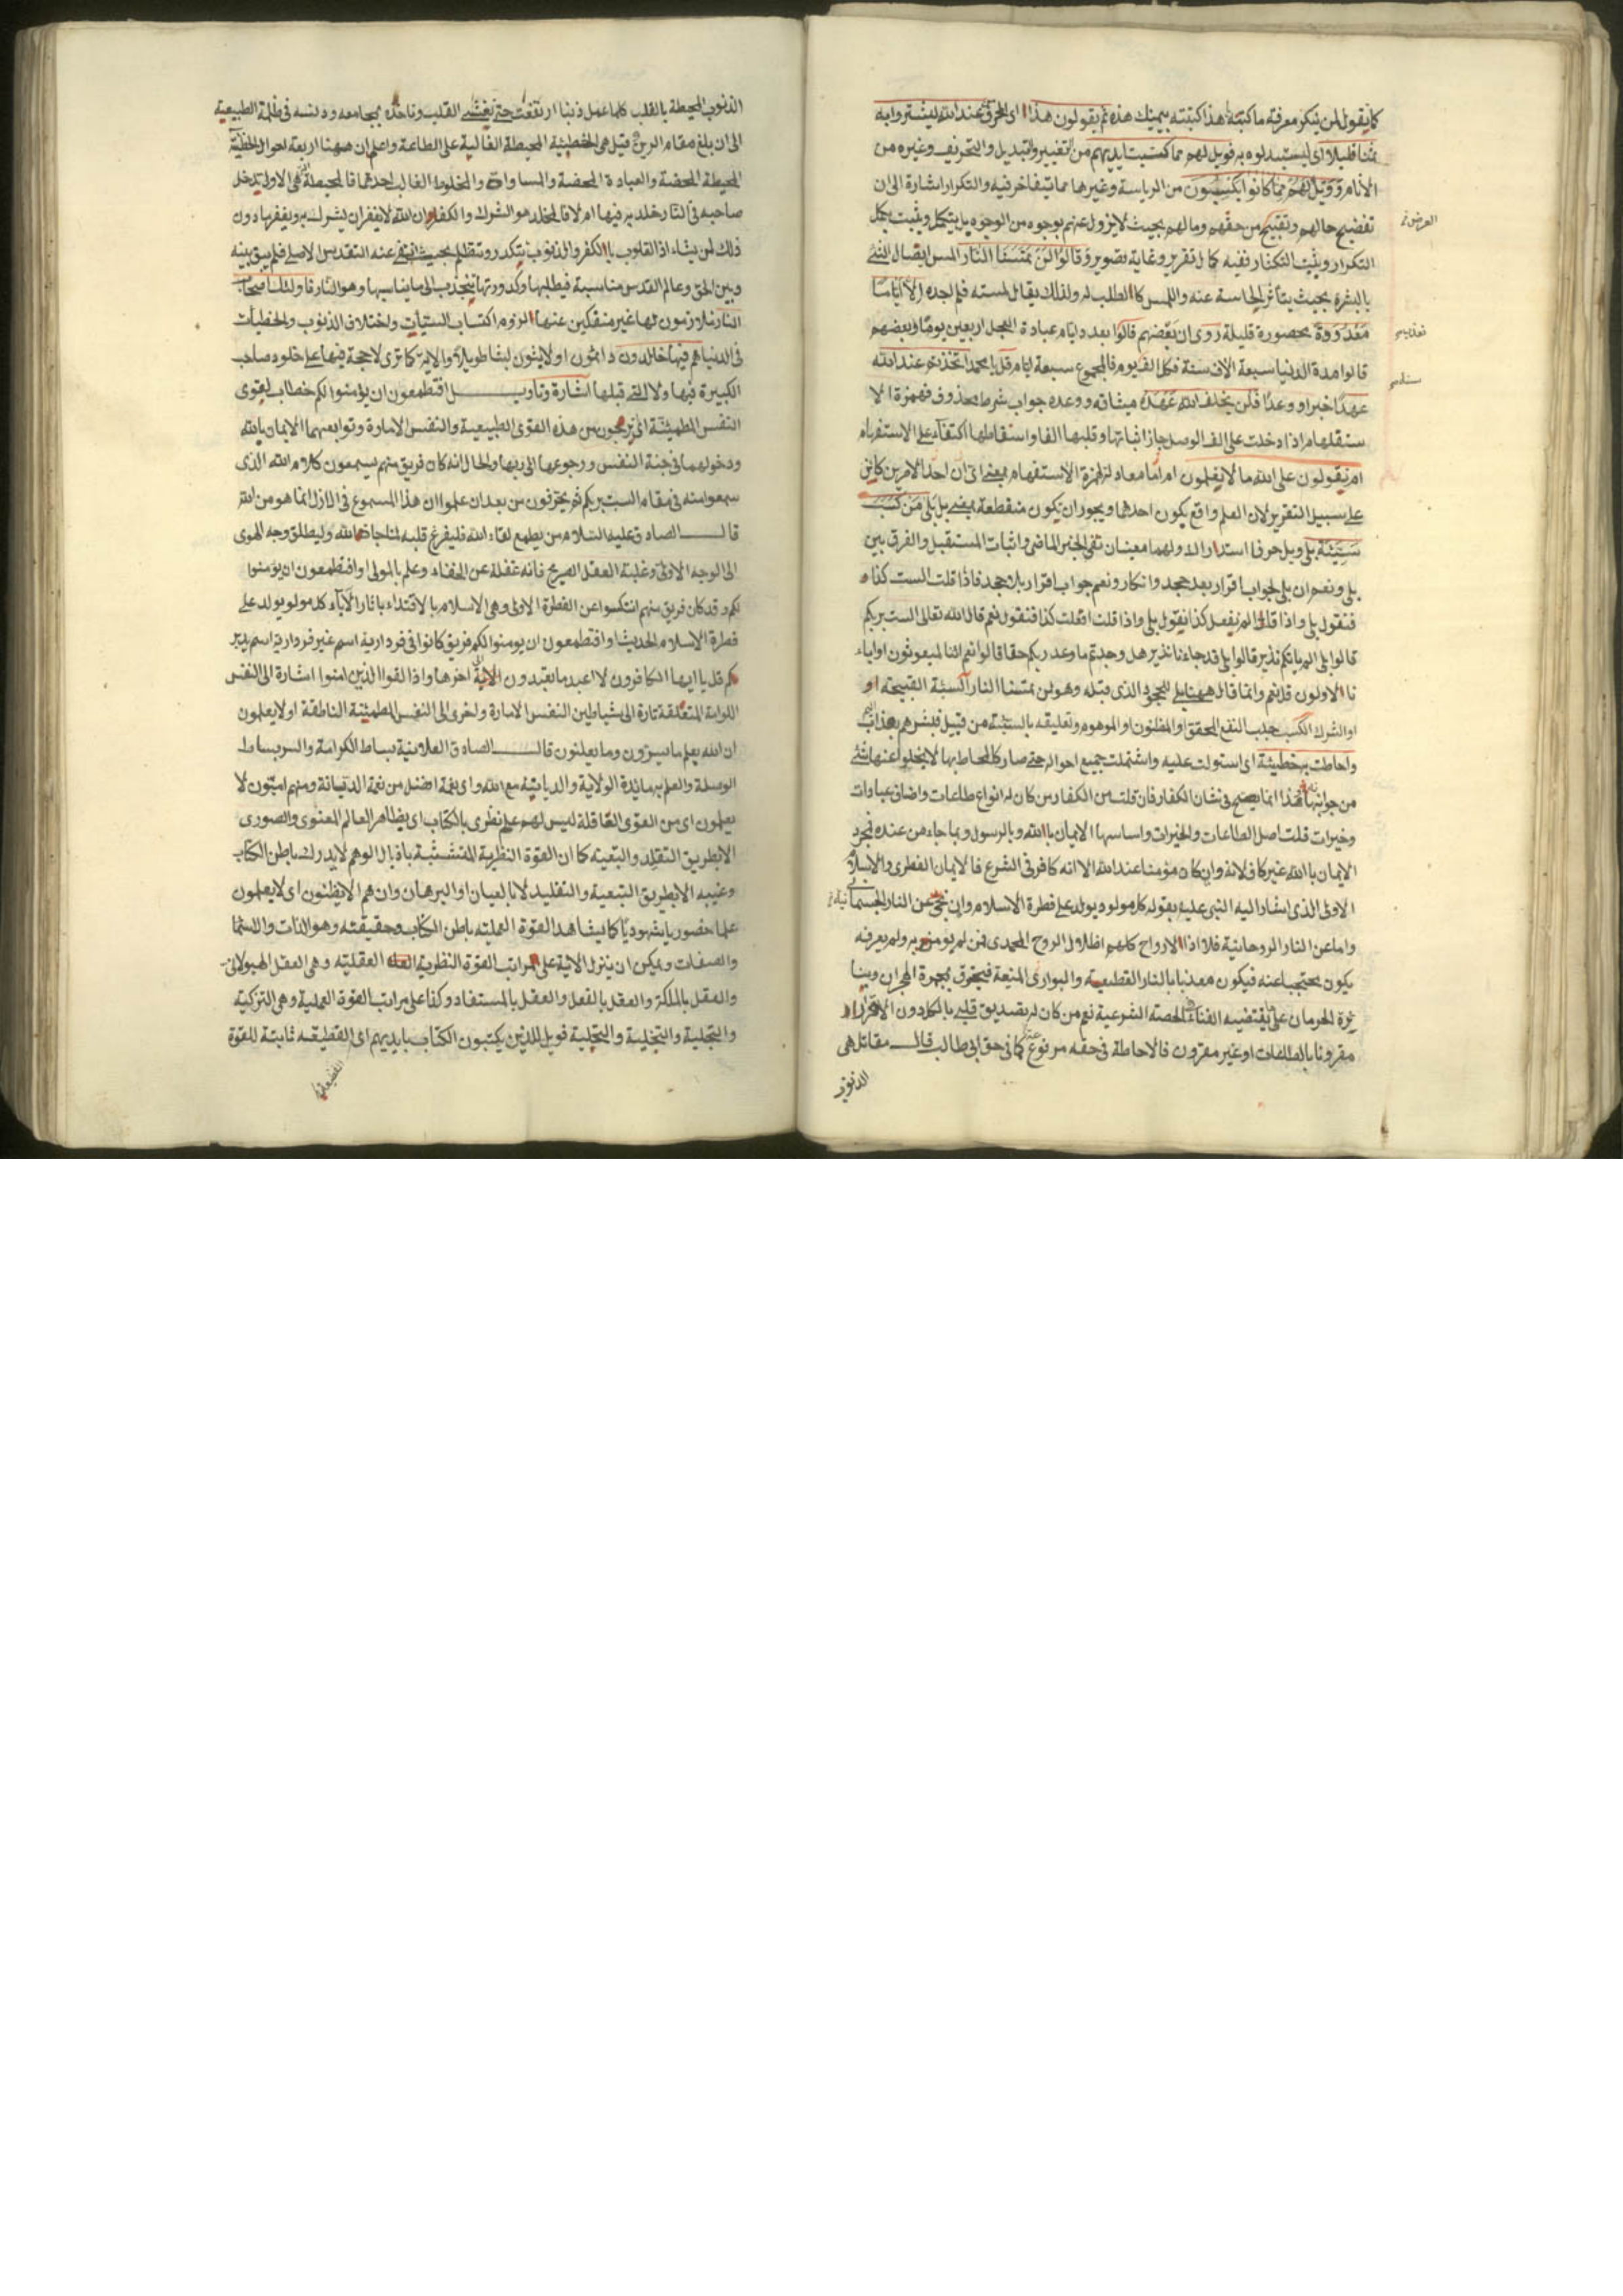 كما يقول لمن ينكر معرفة ما كتبته هذا كتبته بيمينك هذه ثم يقولون هذا اى المحرف من عند الله ليشتروا به
ثمنا قليلا اى ليستبدلوه به فويل لهم مما كتبت ايديهم من التغيير والتبديل والتحريف وغيره من
الآثام وويل لهم مما كانوا يكسبون من الرياسة وغيرها مما فيه والتكرار اشارة الى ان
تفضيح حالهم وتقبيح من حقهم ومالهم بحيث لا يزول عنهم بوجه من الوجوه بل
التكرار ففيه كمال تقرير وغاية تصوير وقالوا لن تمسنا النار المس ايصال الشئ
بالبشرة بحيث يتأثر الحاسة عنه واللمس كالطلب له ولذلك يقال لمسته فلم اجده الا اياما
معدودة محصورة قليلة روى ان بعضهم قالوا بعدد ايام عبادة العجل اربعين يوما وبعضهم
قالوا مدة الدنيا سبعة الاف سنة فكل الف يوم فالمجموع سبعة ايام قل يا محمد اتخذتم عند الله
عهدا خبرا او وعدا فلن يخلف الله عهده ميثاقه ووعده جواب شرط محذوف فهمزة الا
ستفهام اذا دخلت على الف الوصل جاز اثباتها وقلبها الفا واسقاطها اكتفاء على الاستفهام
ام تقولون على الله ما لا تعلمون ام اما معادلة لهمزة الاستفهام بمعنى اى ان احد الامرين كاين
على سبيل التقرير لان العلم واقع بكون احدهما ويجوز ان يكون منقطعة بمعنى بل بلى من كسب
سيئة بلى وبل حرفا استدراك ولهما معنيان نفى الخبر الماضى واثبات المستقبل والفرق بين
بلى ونعم ان بلى لجواب اقرار بعد جحد وانكار ونعم جواب اقرار بلا جحد فاذا قلت الست كذا
فنقول بلى واذا قلت الم يفعل كذا تقول بلى واذا قلت افعلت كذا فتقول نعم قال الله تعالى الست بربكم
قالوا بلى الم يأتكم نذير قالوا بلى قد جاءنا نذير هل وجدتم ما وعد ربكم حقا قالوا نعم ائنا لمبعوثون او اباء
نا الاولون قل نعم وانما قال ههنا بلى للجحود الذى قبله وهو لن تمسنا النار السيئة القبيحة او
او الشرك الكسب جلب النفع المحقق او المظنون او الموهوم وتعليقه بالسيئة من قبيل فبشرهم بعذاب
واحاطت به خطيئة اى استولت عليه واشتملت جميع احواله حتى صار كالمحاط بها لا يخلو عنها شئ
من جوانبها هذا انما يصح فى شان الكفار فان قلت من الكفار من كان له انواع طاعات واضاف عبادات
وخيرات قلت اصل الطاعات والخيرات واساسها الايمان بالله وبالرسول وبما جاء من عنده
الايمان بالله غير كاف لانه وان كان مؤمنا عند الله الا انه كافر فى الشرع فالايمان الفطرى والاسلام
الاولى الذى اشار اليه النبى عليه بقوله كل مولود يولد على فطرة الاسلام وان نجى عن النار الجسمانية
واما عن النار الروحانية فلا اذ الارواح كلهم اظلال الروح المحمدى فمن لم يؤمن به ولم يعرفه
يكون محتجبا عنه فيكون معذبا بالنار القطيعة والبوارى المنيعة فيحترق بجمرة الهجران
الحرمان على يقتضيه الفناء الحصة الشرعية نعم من كان له تصديق قلبى دون الاقرار
مقرونا بالطاعات او غير مقرون فالاحاطة فى حقه مرفوع كما فى حق ابى طالب قال مقاتل هى
الذنوب
الذنوب المحيطة بالقلب كلما عمل ذنبا ارتفعت حتى تغشى القلب وتاخذه بمجامعه فى ظلمة الطبيعية
الى ان بلغ مقام الرين قيل هى الخطيئة المحيطة الغالبة على الطاعة واعلم ان ههنا اربعة احوال الخطيئة
المحيطة المحضة والعبادة المحضة والمساواة والمخلوط الغالب احدهما فالمحيطة هى الاولى يدخل
صاحبه فى النار خلد به فيها ام لا فالمخلد هو الشرك والكفر ان الله لا يغفر ان يشرك به ويغفر ما دون
ذلك لمن يشاء اذ القلوب بالكفر والذنوب يتكدر ويتظلم بحيث ينتفى عنه التقدس الاصلى فلم يبق بينه
وبين الحق وعالم القدس مناسبة فيطلبها وكدورتها ينجذب الى ما يناسبها وهو النار فاولئك اصحاب
النار ملازمون لها غير منفكين عنها لزوم اكتساب السيئات واختلاف الذنوب والخطيئات
فى الدنيا هم فيها خالدون دائمون او لابثون لبثا طويلا والاية كما ترى لا حجة فيها على خلود صاحب
الكبيرة فيها ولا التى قبلها اشارة وتاويل افتطمعون ان يؤمنوا لكم خطاب لقوى
النفس المطمئنة اى ترجون من هذه القوى الطبيعية والنفس الامارة وتوابعهما الايمان بالله
ودخولهما فى جنة النفس ورجوعها الى ربها والحال انه كان فريق منهم يسمعون كلام الله الذى
سمعوا منه فى مقام الست بربكم ثم يحرفون من بعد ان علموا ان هذا المسموع فى الازل انما هو من الله
قال الصادق عليه السلام من يطمع لقاء الله فليفرغ قلبه لمناجاة الله وليطلق وجه الهوى
الى الوجه الاولى وغلبة العقل الصريح فانه غفلة عن الخفاء وعلم بالمولى او افتطمعون ان يؤمنوا
لكم وقد كان فريق منهم انتكسوا عن الفطرة الاولى وهى الاسلام بالاقتداء باثار الآباء كل مولود يولد على
فطرة الاسلام الحديث او افتطمعون ان يؤمنوا لكم فريق كانوا فى
قل يا ايها الكافرون لا اعبد ما تعبدون الاية اخرها واذا لقوا الذين امنوا اشارة الى النفس
اللوامة المتعلقة تارة الى شياطين النفس الامارة واخرى الى النفس المطمئنة الناطقة او لا يعلمون
ان الله يعلم ما يسرون وما يعلنون قال الصادق العلانية بساط الكرامة والسر بساط
الوسيلة والعلم به مائدة الولاية مع الله واى نعمة افضل من نعمة الديانة ومنهم اميون لا
يعلمون اى من القوى العاقلة ليس لهم علم نظرى بالكتاب اى بظاهر العالم المعنوى والصورى
الا بطريق التقليد والتبعية كما ان القوة النظرية المتشبثة باذيال الوهم لا يدرك باطن الكتاب
وغيبه الا بطريق التبعية والتقليد لا بالعيان او البرهان وان هم الا يظنون اى لا يعلمون
علما حضوريا شهوديا كما يشاهد القوة العملية باطن الكتاب وحقيقته وهو الذات والاسماء
والصفات ويمكن ان ينزل الاية على مراتب القوة النظرية العقلية وهى العقل الهيولانى
والعقل بالملكة والعقل بالفعل والعقل بالمستفاد وكذا على مراتب القوة العملية وهى التزكية
والتجلية والتخلية والتحلية فويل للذين يكتبون الكتاب بايديهم اى القطيعة ثابتة للقوة